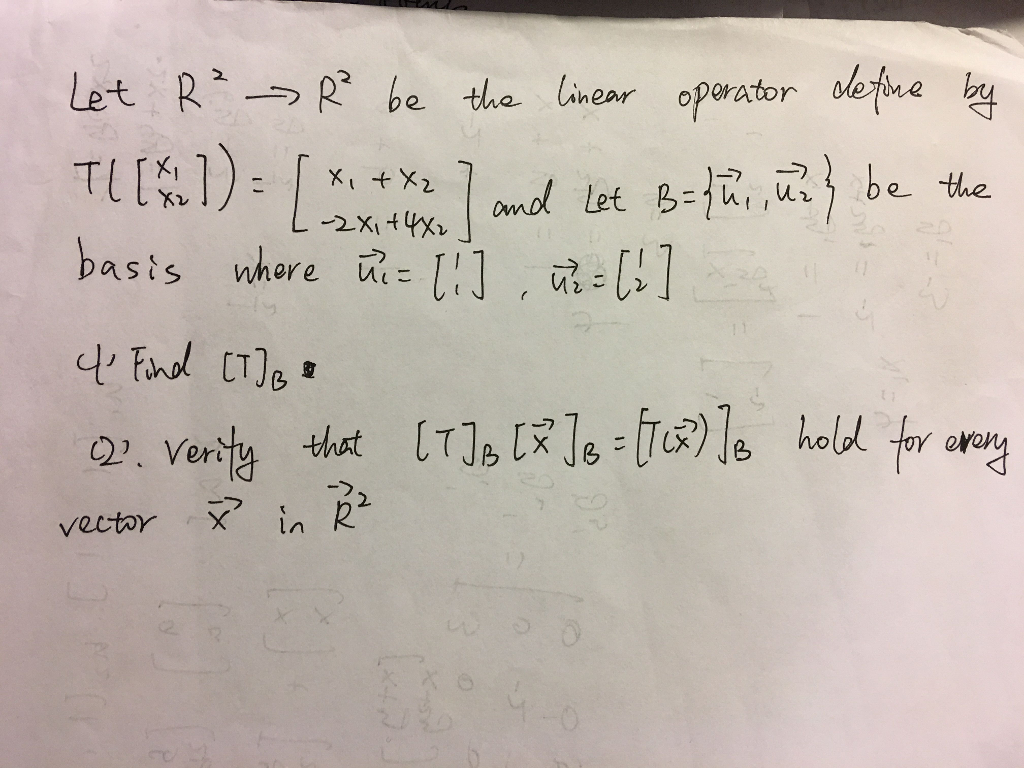 Let R² → R² be the linear operator define by
T([x₁ x₂]) = [x₁ + x₂ -2x₁+4x₂] and Let B={u⃗₁, u⃗₂} be the
basis where u⃗₁=[1 1], u⃗₂=[1 2]
(1) Find [T]B.
(2). Verify that [T]B [x⃗]B = [T(x⃗)]B hold for every
vector x⃗ in R⃗²